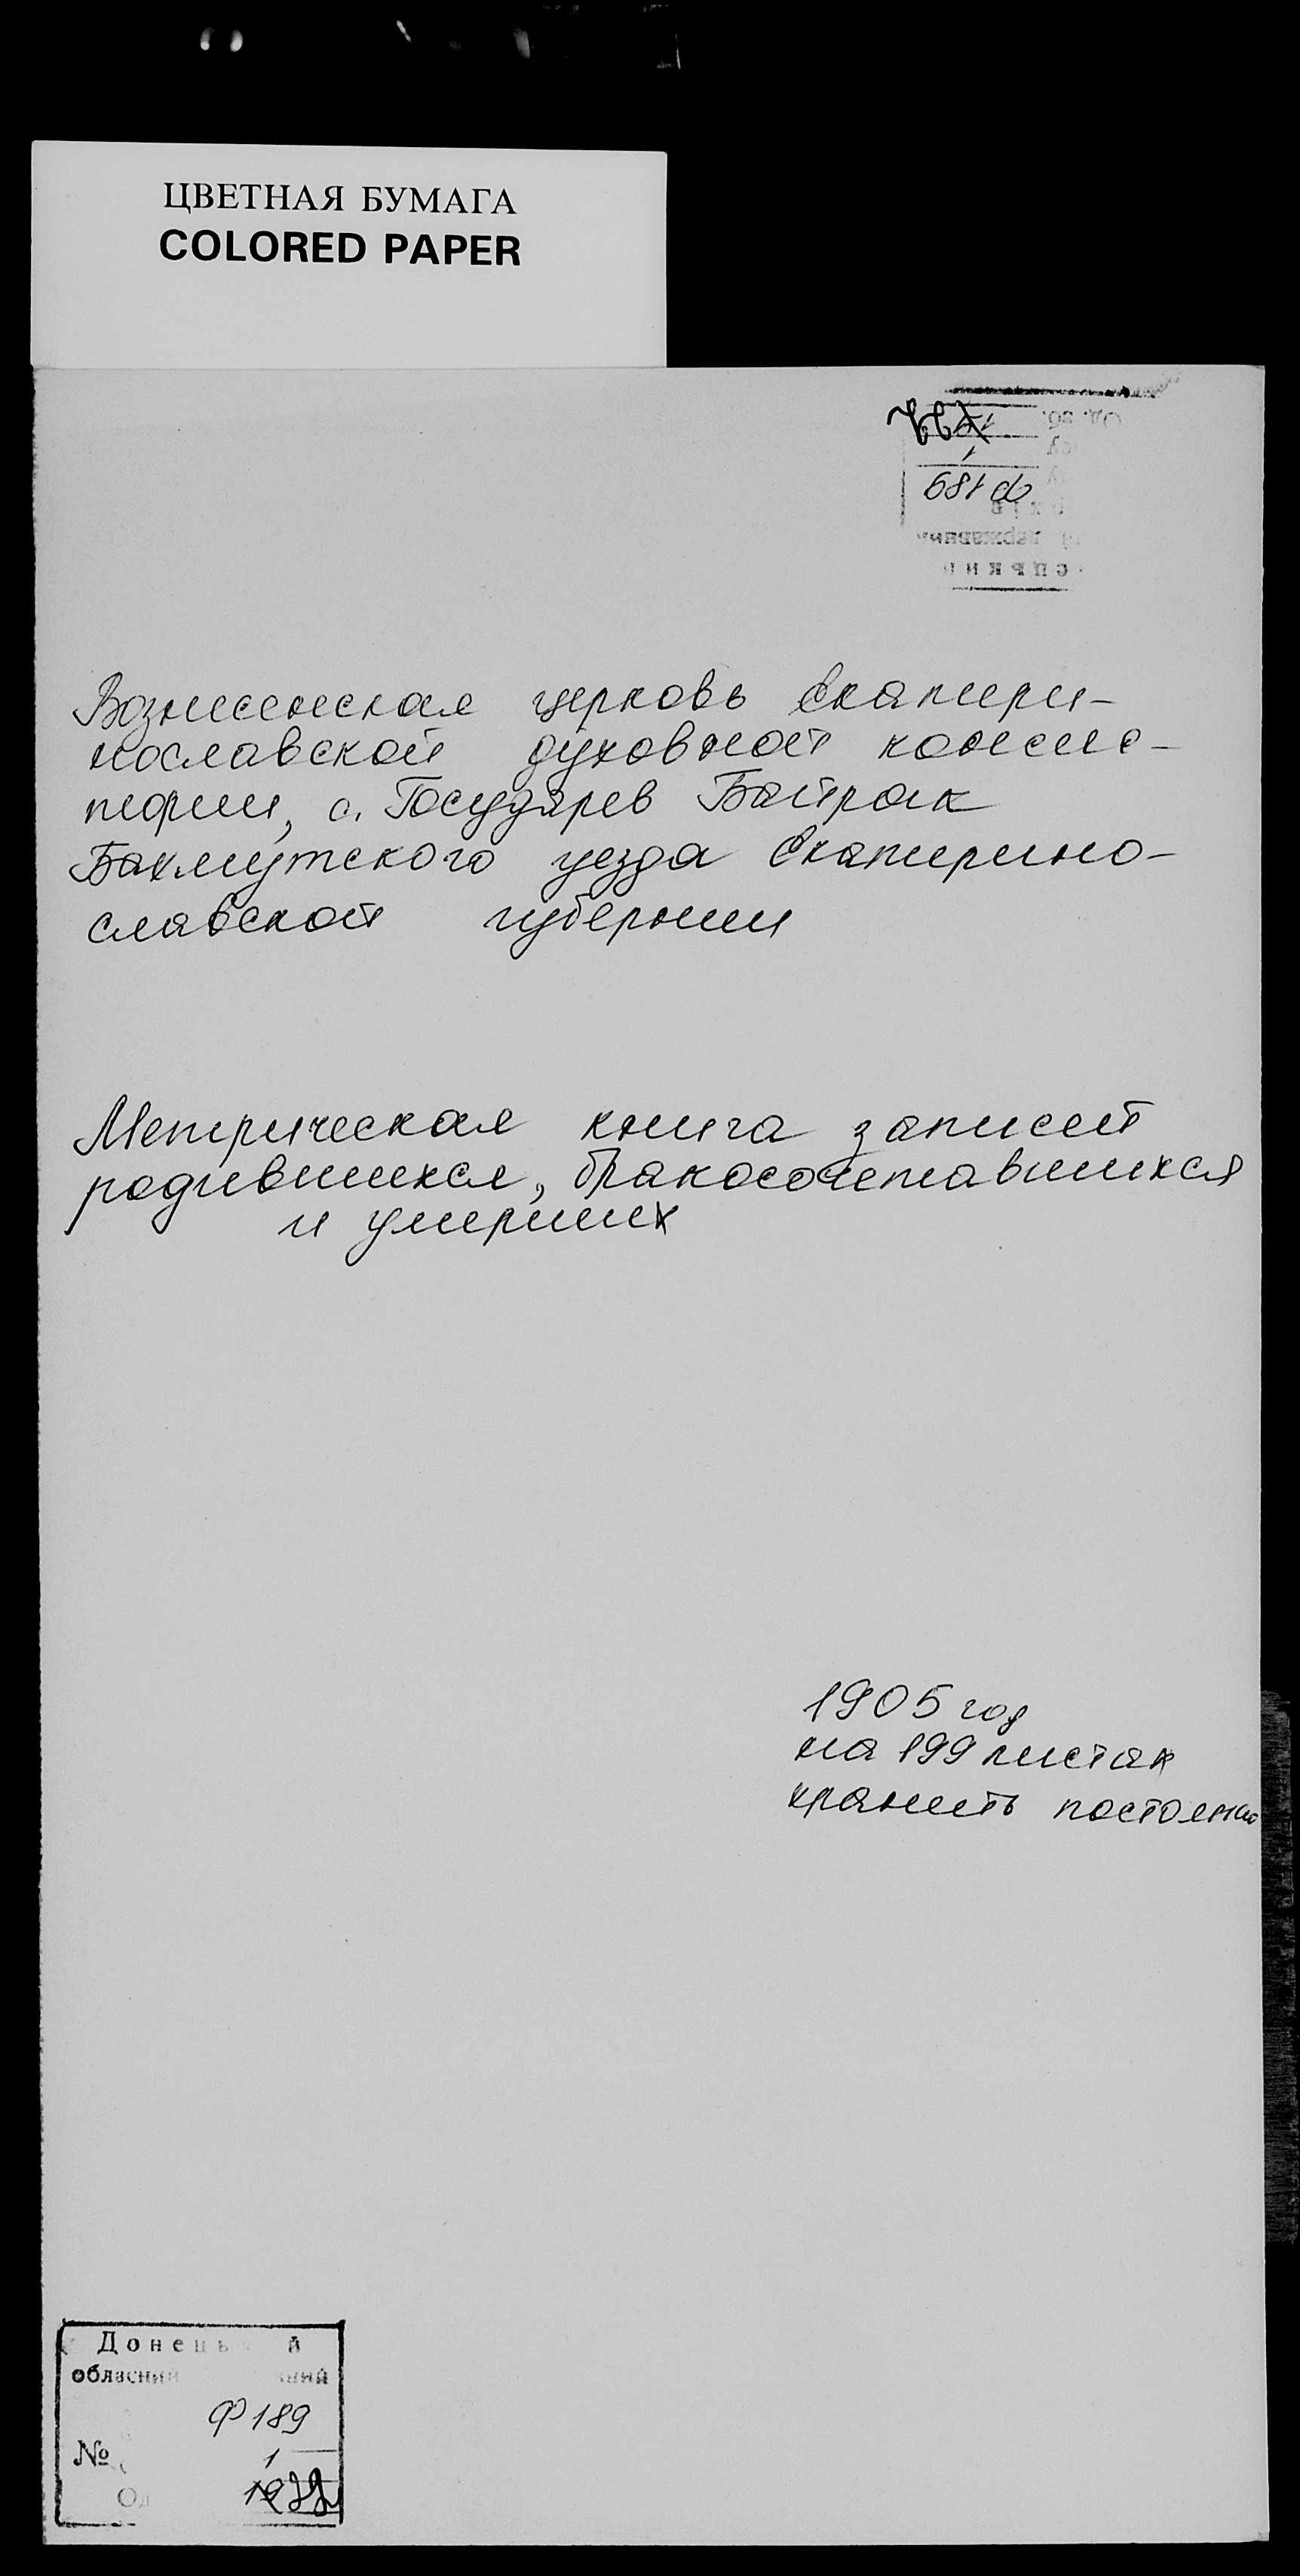 ЦВЕТНАЯ БУМАГА
COLORED PAPER
Ф 189
1
Вознесенская церковь Екатери-
нославской духовной консис-
тории, с. Государев Байрак
Бахмутского уезда Екатерино-
славской губернии
Метрическая книга записей
родившихся, бракосочетавшихся
и умерших
1905 год
на 199 листах
хранить постоянно
Донець й
обласний ний
Ф 189
№ 1